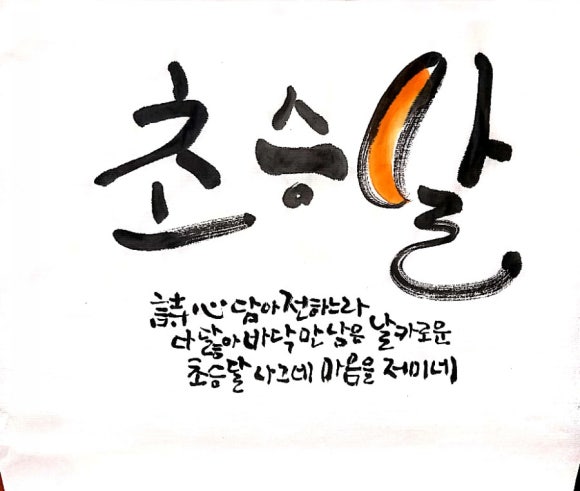 초승달
詩心 담아 전하느라
다 닳아 바닥만 남은 날카로운
초승달 사그데 마음을 저미네